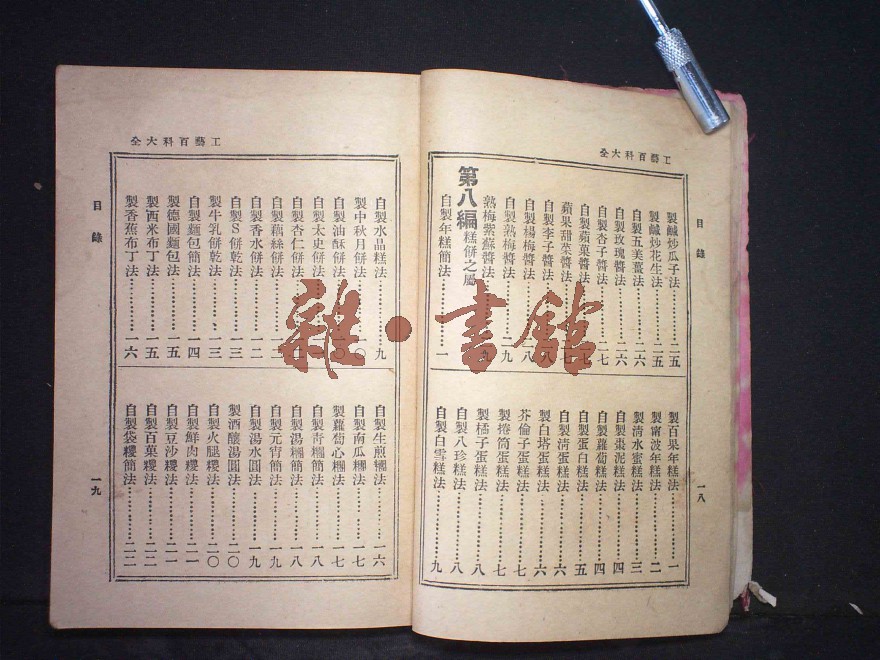 工藝百科大全
目錄
製鹹炒瓜子法…………二五
製鹹炒花生法…………二五
自製五美薑法…………二六
自製玫瑰醬法…………二六
自製杏子醬法…………二七
自製蘋菓醬法…………二七
蘋果甜菜醬法…………二七
自製李子醬法…………二八
自製楊梅醬法…………二八
自製熟梅醬法…………二九
熟梅紫蘇醬法…………二九
第八編 糕餅之屬
自製年糕簡法…………一
製百果年糕法…………一
製甯波年糕法…………二
製淸水蜜糕法…………三
自製棗泥糕法…………四
自製蘿蔔糕法…………四
自製蛋白糕法…………五
自製淸蛋糕法…………六
製白塔蛋糕法…………六
芥倫子蛋糕法…………七
製捲筒蛋糕法…………七
製橘子蛋糕法…………八
自製八珍糕法…………八
自製白雪糕法…………九
一八
工藝百科大全
目錄
自製水晶糕法…………九
製中秋月餅法…………一〇
自製油酥餅法…………一〇
自製太史餅法
自製杏仁餅法
自製藕絲餅法
自製香水餅法…………一二
自製S餅乾法…………一三
製牛乳餅乾法…………一三
自製麵包簡法…………一四
製德國麵包法…………一五
製西米布丁法…………一五
製香蕉布丁法…………一六
自製生煎糰法…………一六
自製南瓜糰法…………一七
製蘿蔔心糰法…………一七
自製靑糰簡法…………一八
自製湯糰簡法…………一八
自製元宵簡法…………一九
自製湯水圓法…………一九
製酒釀湯圓法…………二〇
自製火腿糉法…………二〇
自製鮮肉糉法…………二一
自製豆沙糉法…………二一
自製百菓糉法…………二二
自製袋糉簡法…………二二
一九
雜·書館